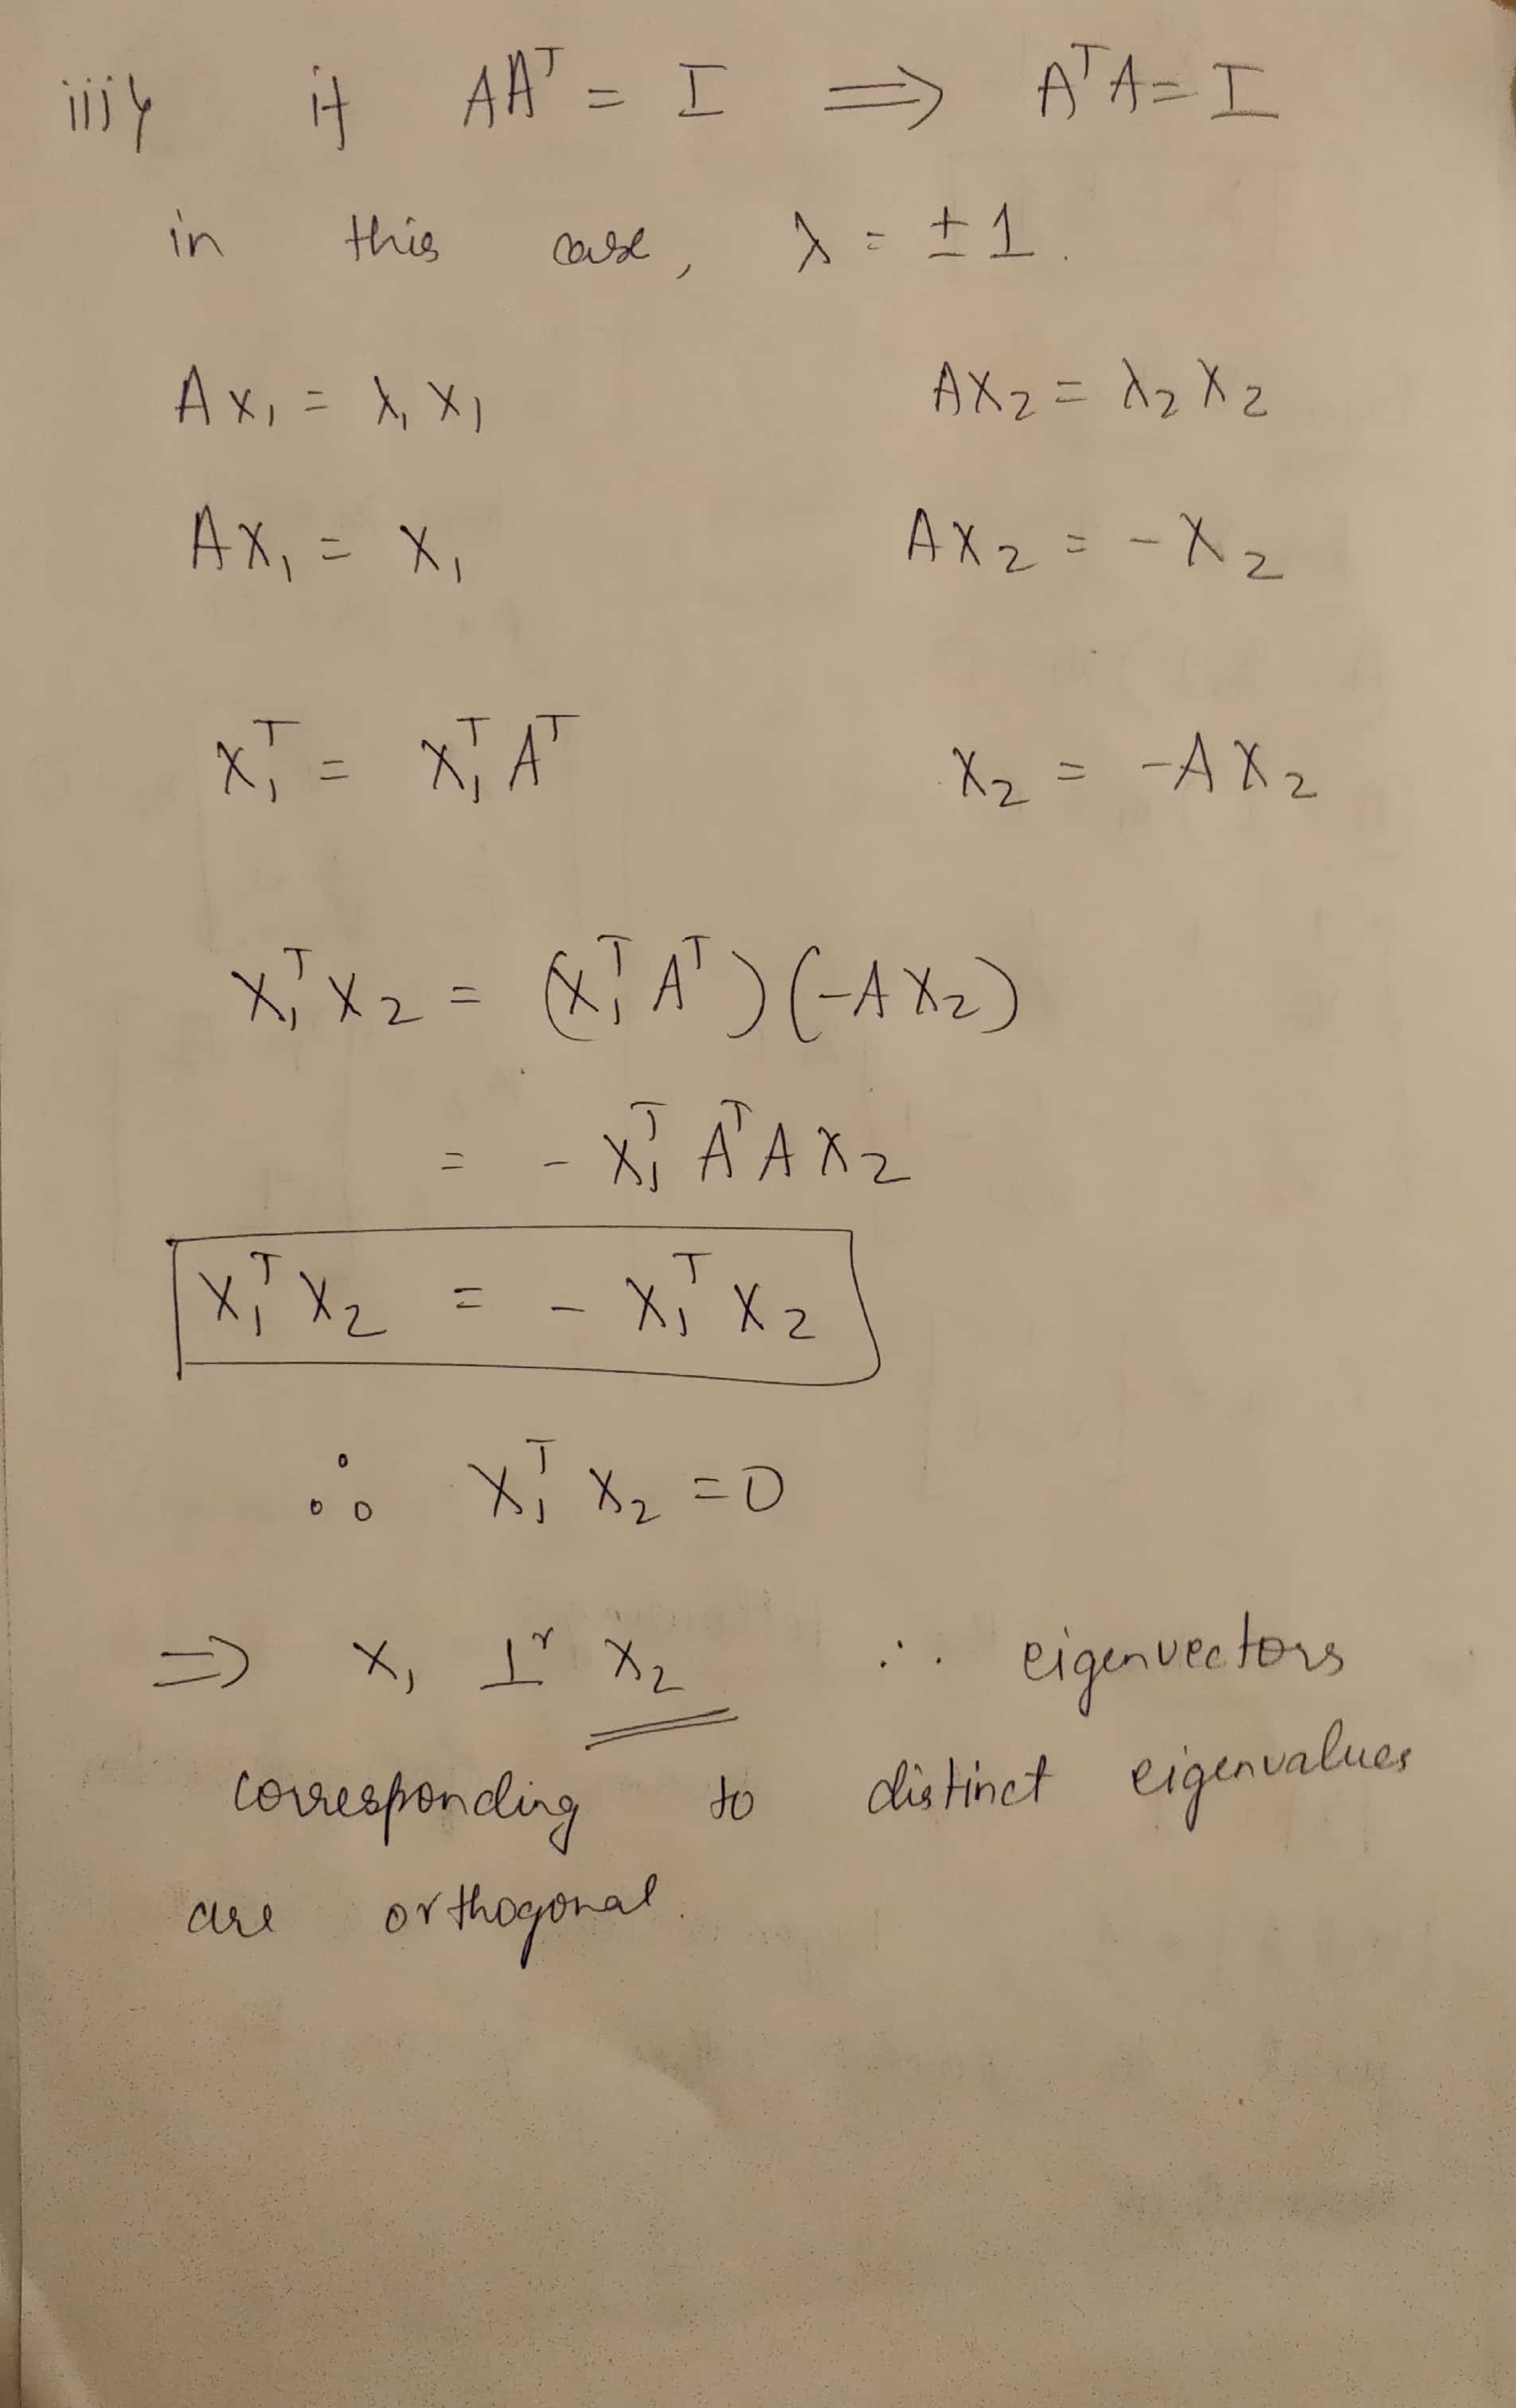 iii) if AAᵀ = I ⟹ AᵀA = I
in this case, λ = ±1.
AX₁ = λ₁X₁ AX₂ = λ₂X₂
AX₁ = X₁ AX₂ = -X₂
X₁ᵀ = X₁ᵀAᵀ X₂ = -AX₂
X₁ᵀX₂ = (X₁ᵀAᵀ)(-AX₂)
= -X₁ᵀAᵀAX₂
X₁ᵀX₂ = -X₁ᵀX₂
∴ X₁ᵀX₂ = 0
⟹ X₁ ⊥ʳ X₂ ∴ eigenvectors
corresponding to distinct eigenvalues
are orthogonal.